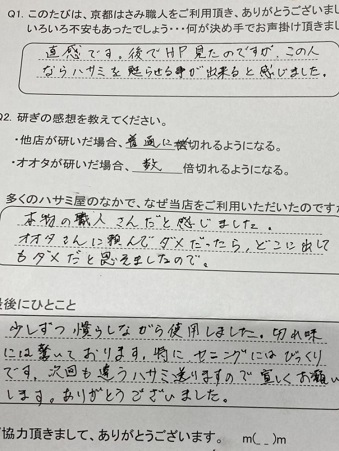 Q1. このたびは、京都はさみ職人をご利用頂き、ありがとうございまし
いろいろ不安もあったでしょう・・・何が決め手でお声掛け頂きまし
直感です。後でHP見たのですが、この人
ならハサミを甦らせる事が出来ると感じました。
Q2. 研ぎの感想を教えてください。
・他店が研いだ場合、普通に切れるようになる。
・オオタが研いだ場合、数倍切れるようになる。
多くのハサミ屋のなかで、なぜ当店をご利用いただいたのですか
本物の職人さんだと感じました。
オオタさんに頼んでダメだったら、どこに出して
もダメだと思えましたので。
最後にひとこと
少しずつ慣らしながら使用しました。切れ味
には驚いております。特にセニングにはびっくり
です。次回も違うハサミ送りますので宜しくお願い
します。ありがとうございました。
協力頂きまして、ありがとうございます。 m(_ _)m